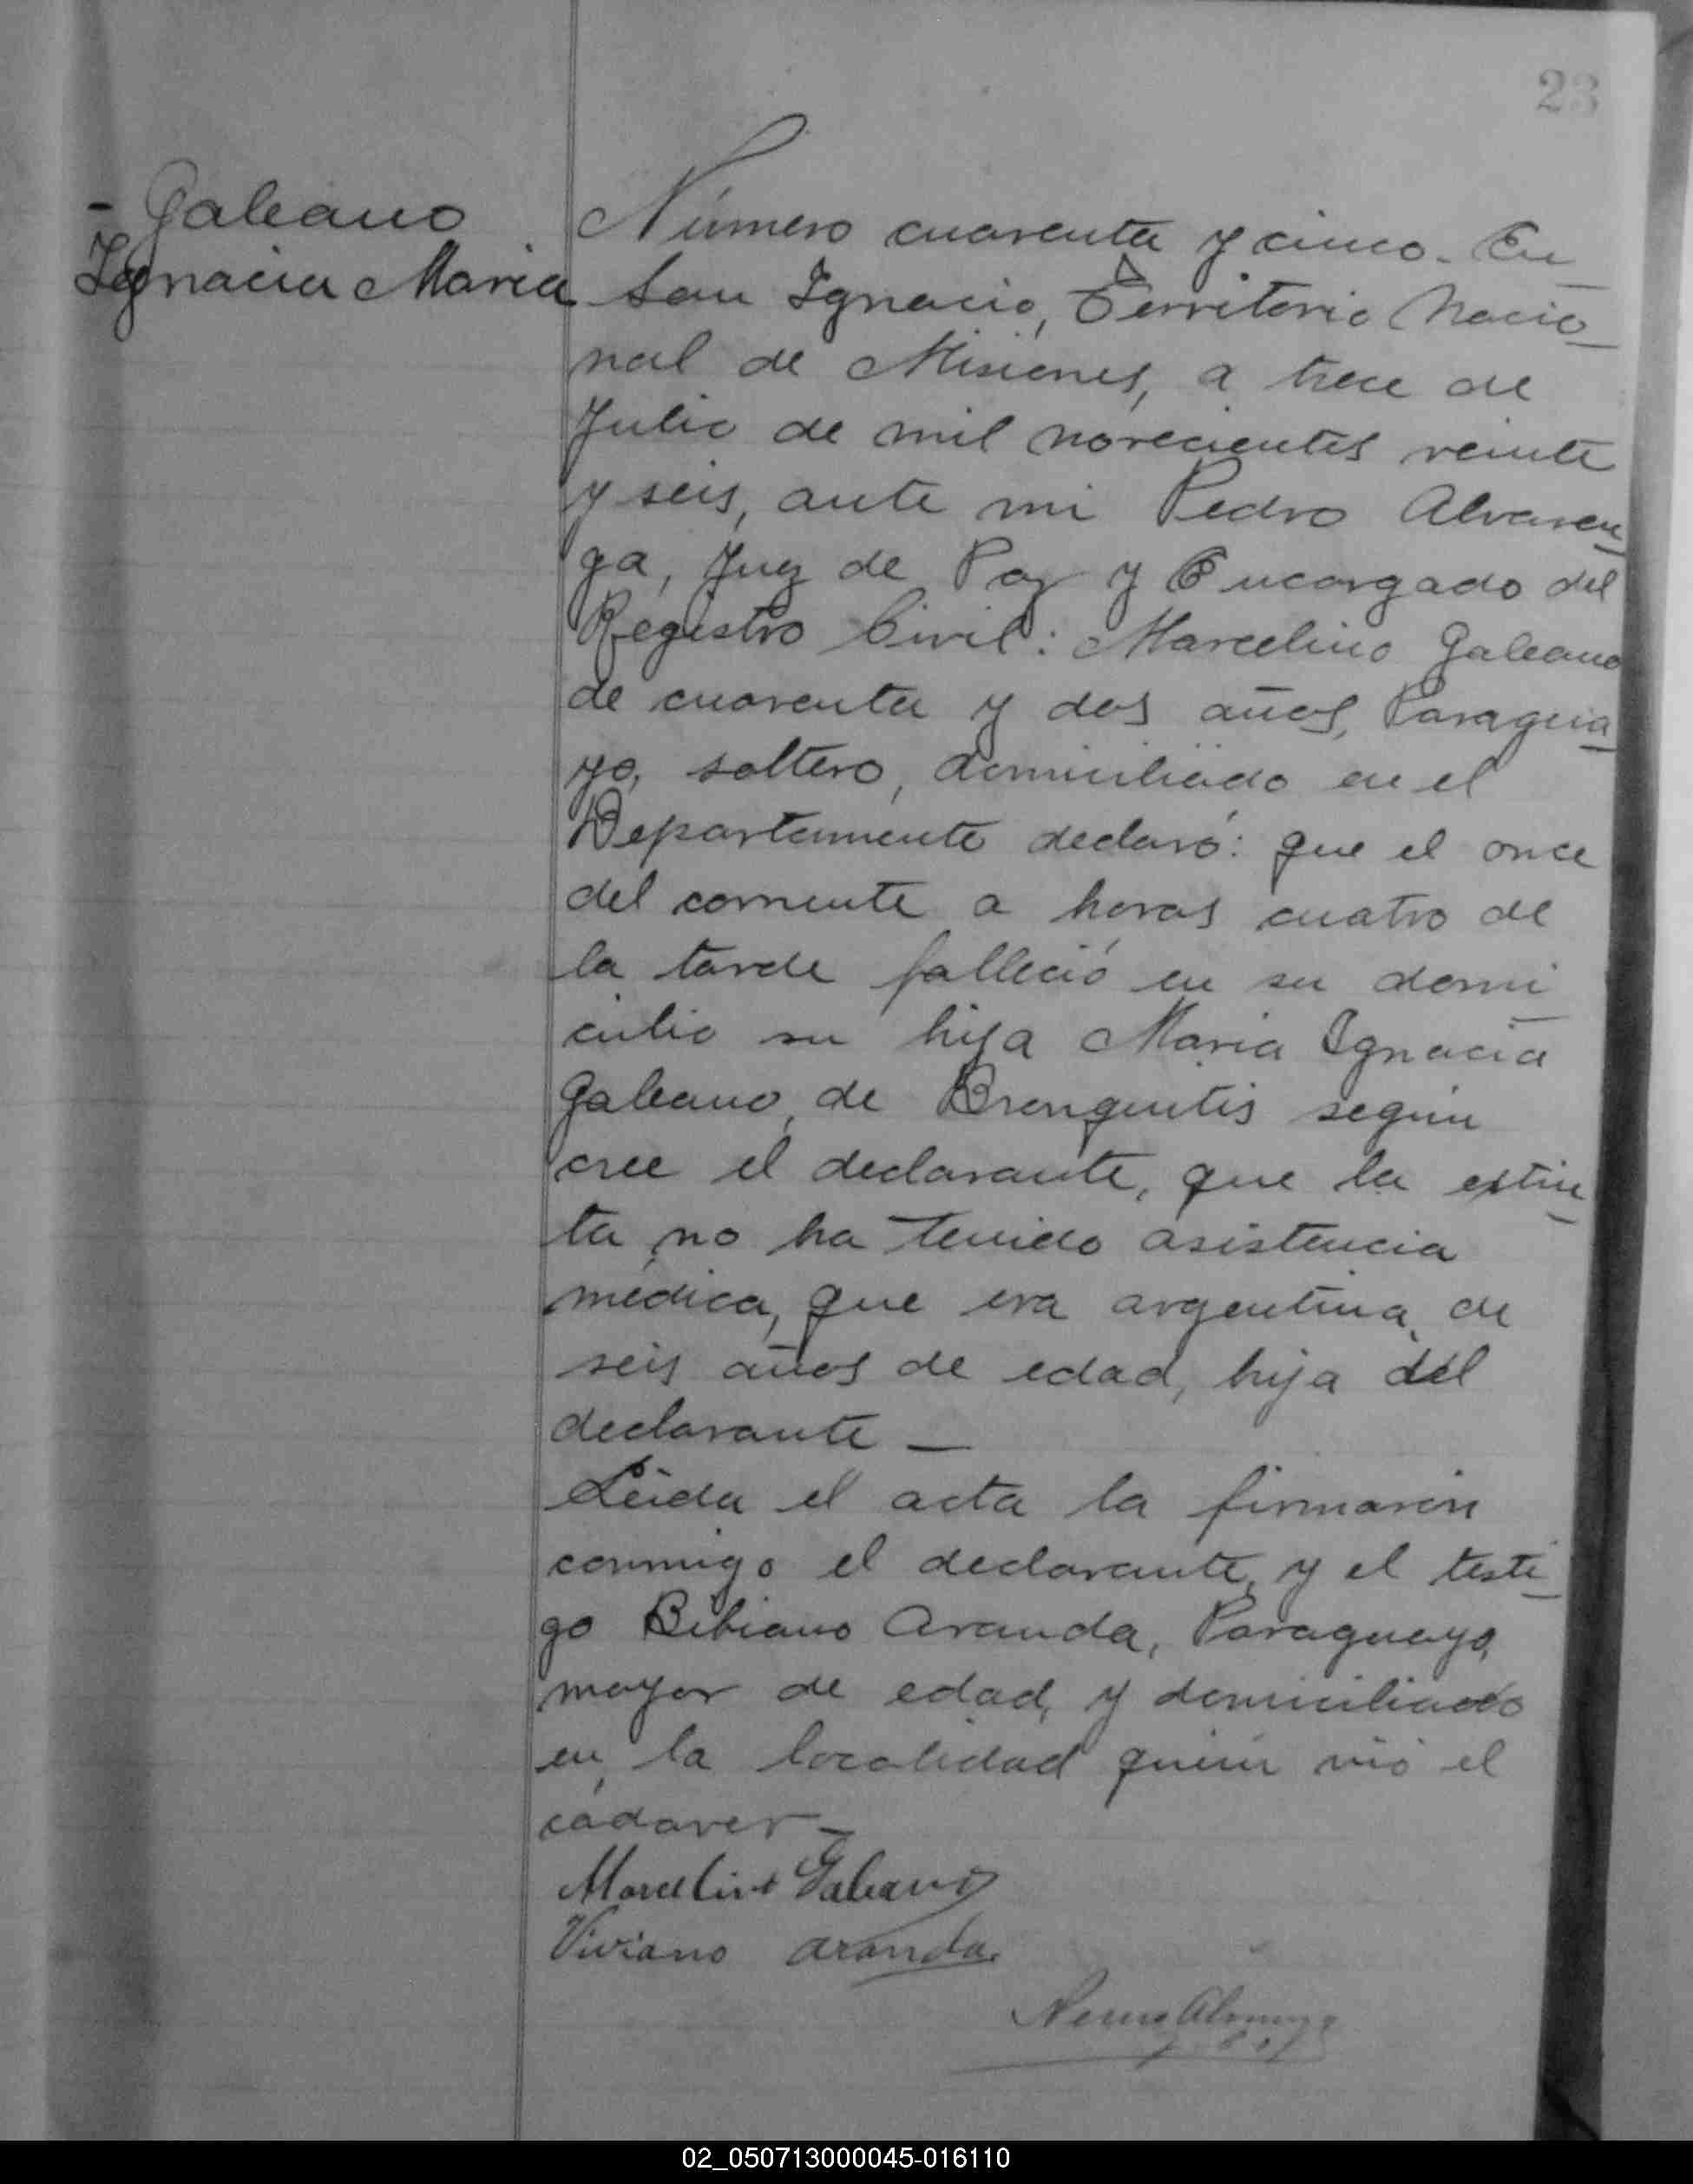 23
- Galeano
Ignacia Maria
Número cuarenta y cinco. En
San Ignacio, Territorio Nacio
nal de Misiones, a trece de
Julio de mil novecientos veinte
y seis, ante mi Pedro Alvaren
ga, Juez de Paz y Encargado del
Registro Civil: Marcelino Galeano
de cuarenta y dos años, Paragua
yo, soltero, domiciliado en el
Departamento declaró: que el once
del corriente a horas cuatro de
la tarde falleció en su domi
cilio su hija Maria Ignacia
Galeano, de Bronquitis según
cree el declarante, que la extin
ta no ha tenido asistencia
médica, que era argentina, de
seis años de edad, hija del
declarante —
Leida el acta la firmaron
conmigo el declarante, y el testi
go Bibiano Aranda, Paraguayo,
mayor de edad, y domiciliado
en la localidad quien vió el
cadaver —
Marcelino Galeano
Viviano aranda
02_050713000045-016110